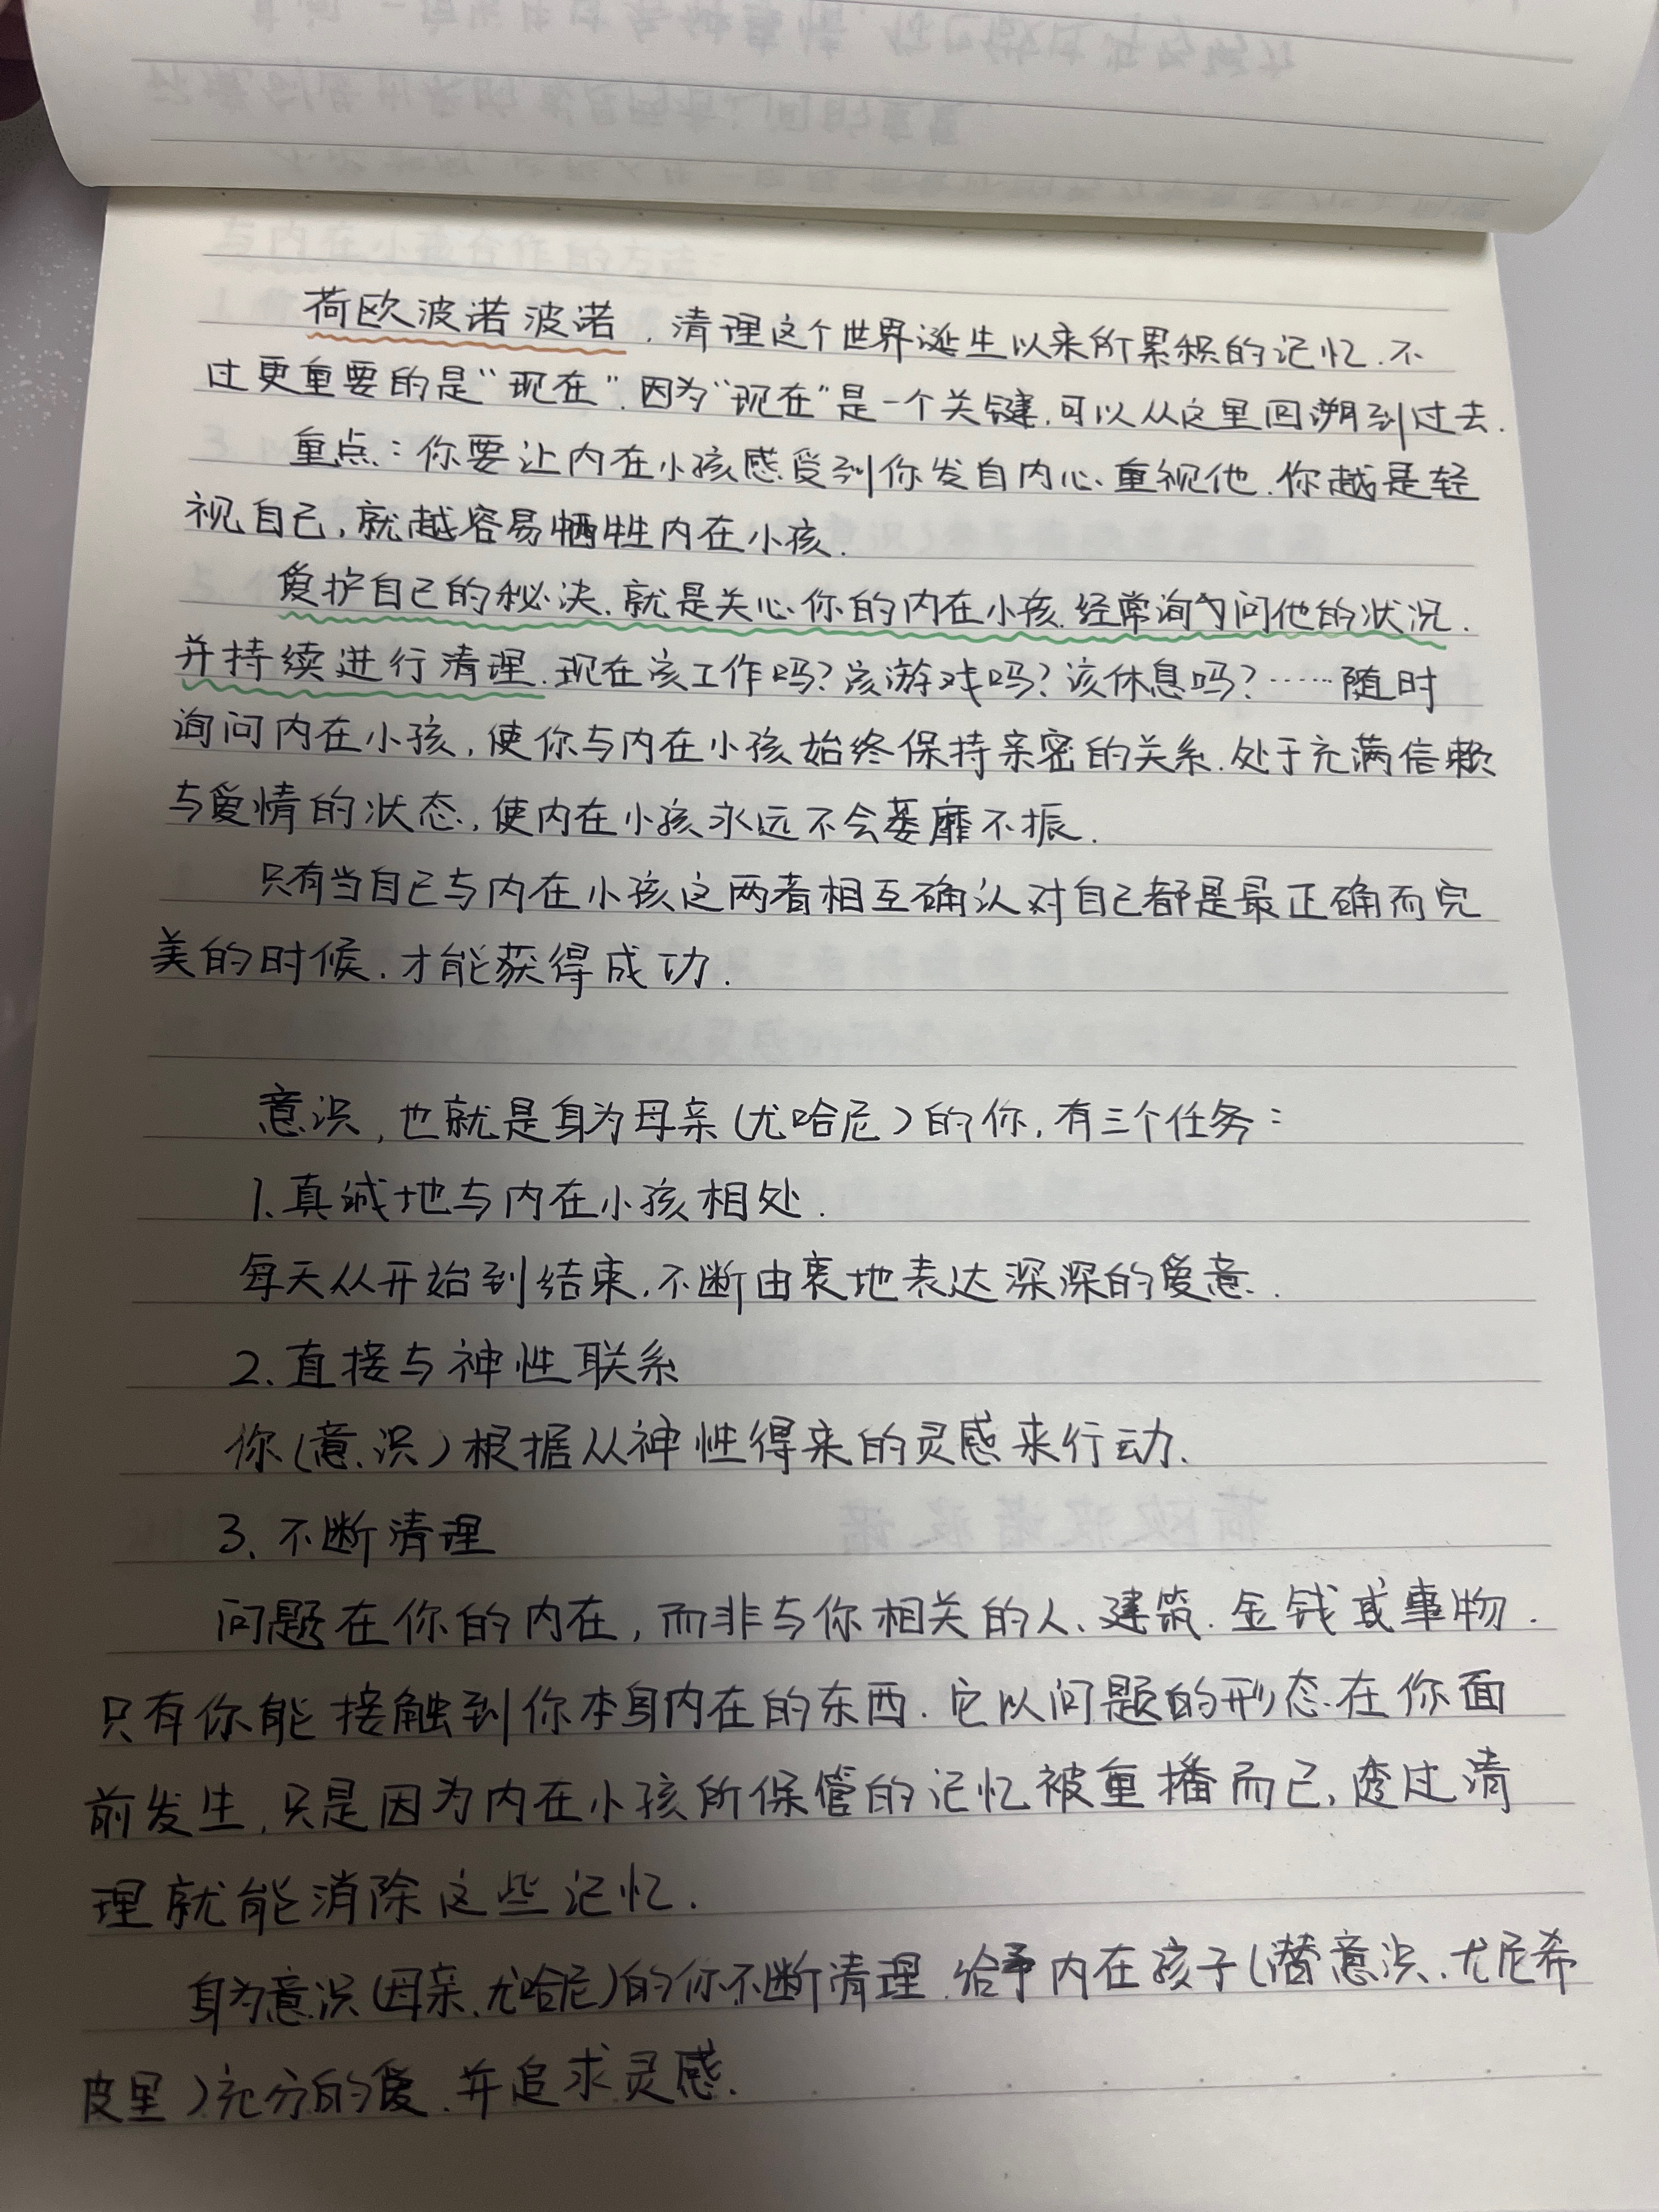 荷欧波诺波诺，清理这个世界诞生以来所累积的记忆.不
过更重要的是“现在”.因为“现在”是一个关键.可以从这里回溯到过去.
重点：你要让内在小孩感受到你发自内心重视他.你越是轻
视自己,就越容易牺牲内在小孩.
爱护自己的秘决.就是关心你的内在小孩.经常询问他的状况.
并持续进行清理.现在该工作吗?该游戏吗?该休息吗?……随时
询问内在小孩,使你与内在小孩始终保持亲密的关系.处于充满信赖
与爱情的状态,使内在小孩永远不会萎靡不振.
只有当自己与内在小孩这两者相互确认对自己都是最正确而完
美的时候.才能获得成功.
意识,也就是身为母亲(尤哈尼)的你,有三个任务:
1.真诚地与内在小孩相处.
每天从开始到结束.不断由衷地表达深深的爱意.
2.直接与神性联系
你(意识)根据从神性得来的灵感来行动.
3、不断清理
问题在你的内在,而非与你相关的人、建筑.金钱或事物.
只有你能接触到你本身内在的东西.它以问题的形态在你面
前发生.只是因为内在小孩所保管的记忆被重播而已,透过清
理就能消除这些记忆.
身为意识(母亲、尤哈尼)的你不断清理.给予内在孩子(潜意识.尤尼希
皮里)充分的爱.并追求灵感.